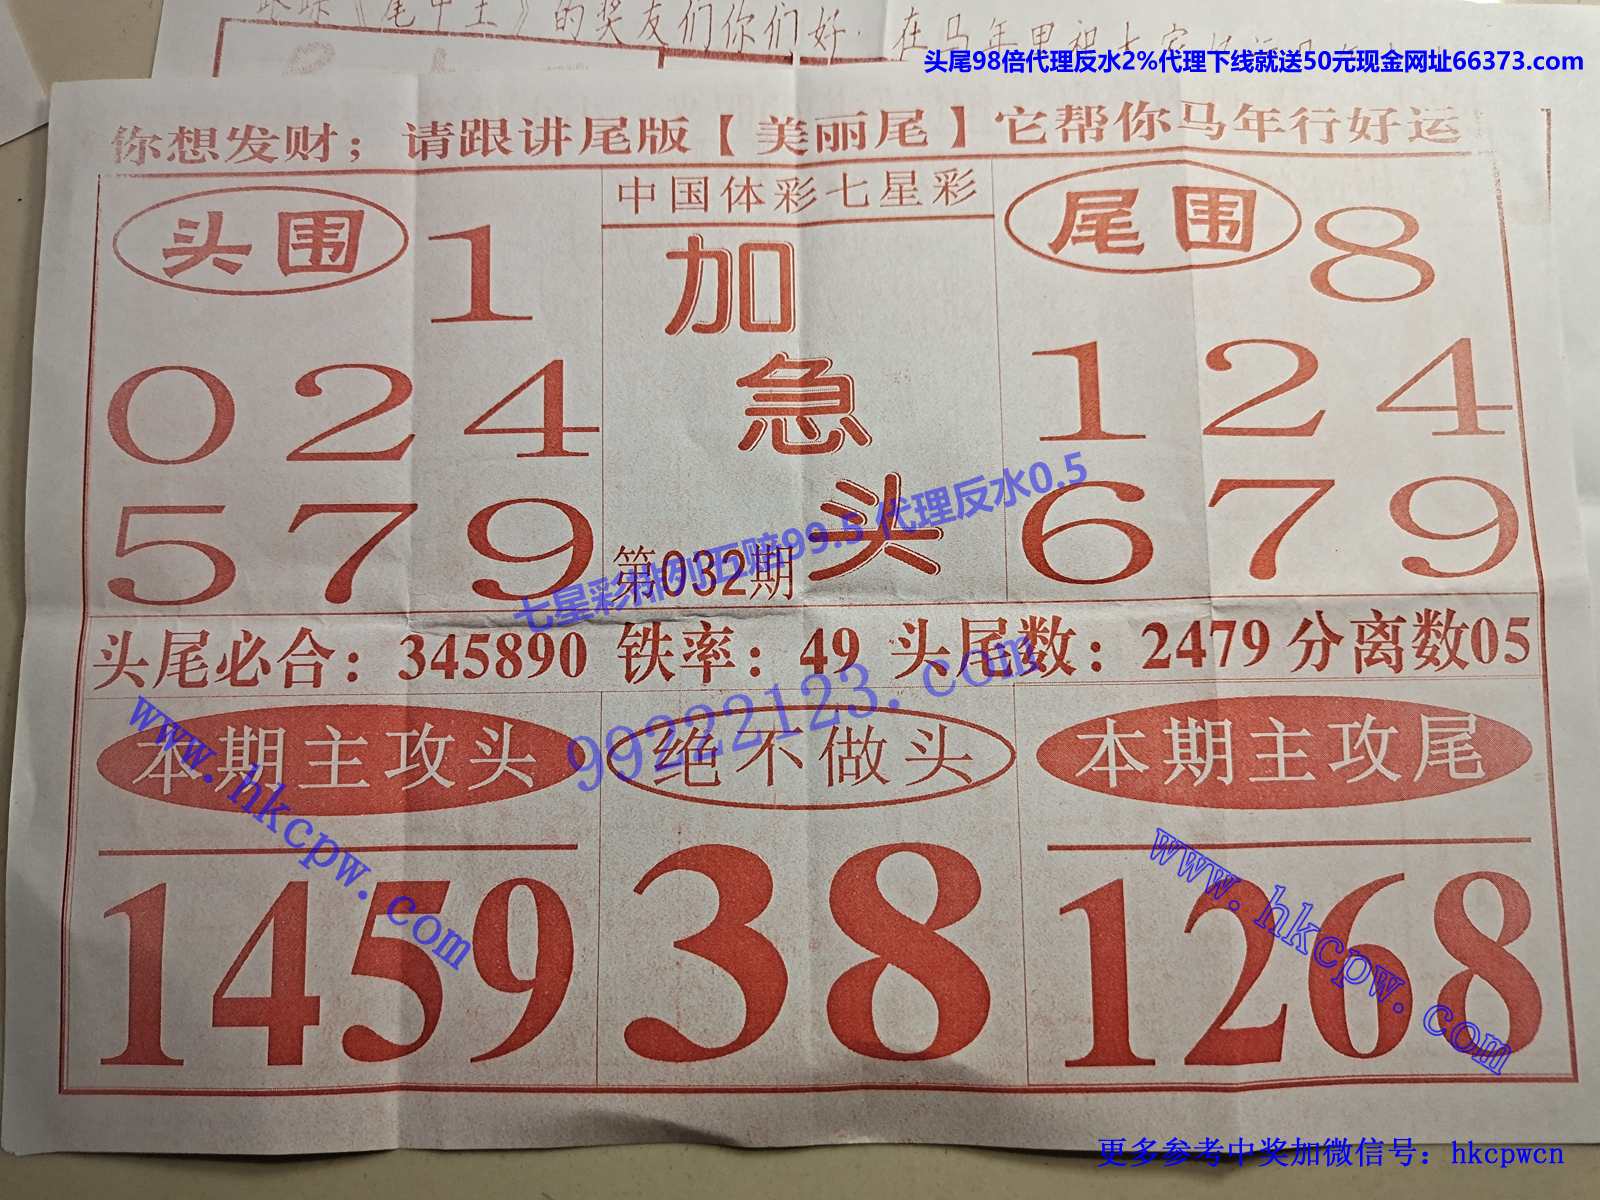 《尾中王》的奖友们你们好
头尾98倍代理反水2%代理下线就送50元现金网址66373.com
你想发财；请跟讲尾版【美丽尾】它帮你马年行好运
头围
1
0 2 4
5 7 9
中国体彩七星彩
加
急
头
第032期
尾围
8
1 2 4
6 7 9
七星彩排列五赔99.5 代理反水0.5
头尾必合：345890 铁率：49 头尾数：2479 分离数05
99222123.com
本期主攻头
1459
绝不做头
38
本期主攻尾
1268
www.hkcpw.com
www.hkcpw.com
更多参考中奖加微信号：hkcpwcn